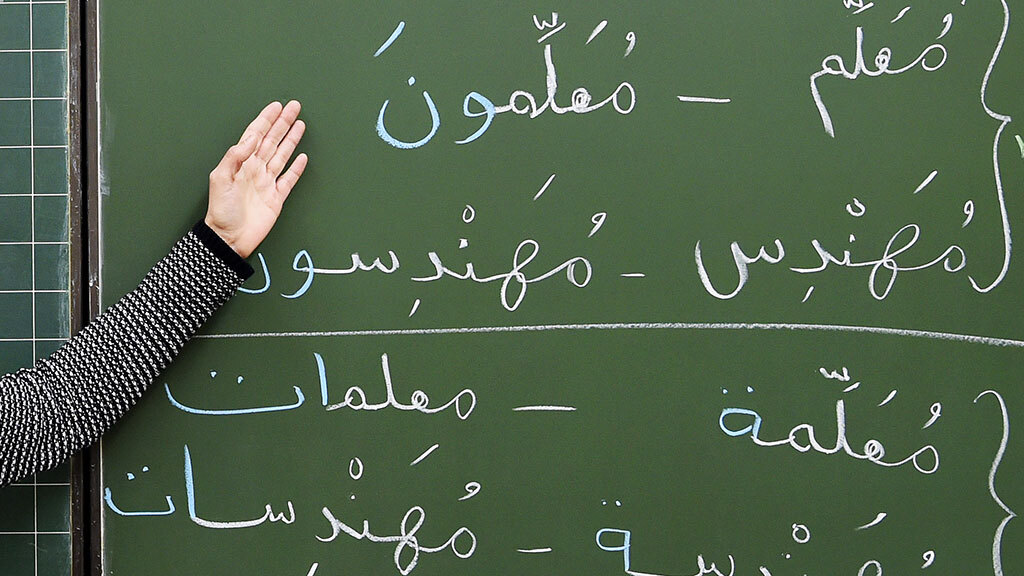 مُعَلِّم – مُعَلِّمونَ
مُهَنْدِس – مُهَنْدِسون
مُعَلِّمة – معلمات
مُهَنْدِسة – مُهَنْدِسات